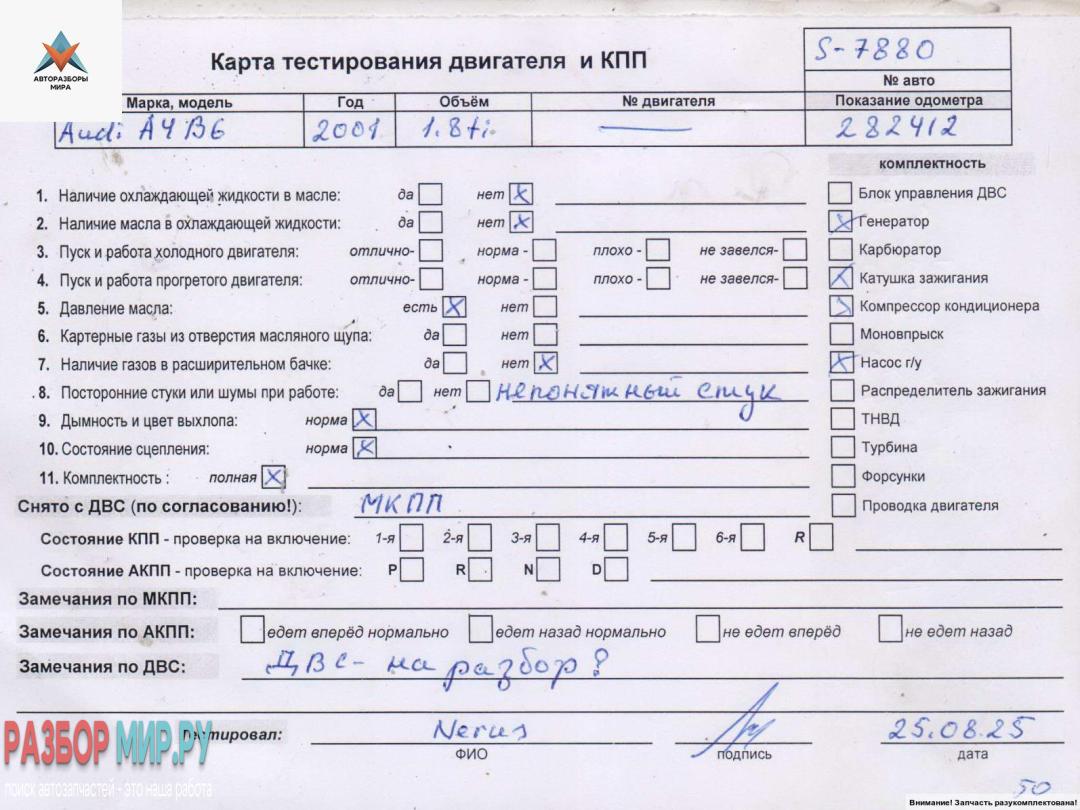 АВТОРАЗБОРЫ
МИРА
Карта тестирования двигателя и КПП
S-7880
№ авто
Марка, модель Год Объём № двигателя Показание одометра
Audi A4 B6 2001 1.8ti — 282412
комплектность
1. Наличие охлаждающей жидкости в масле: да нет X Блок управления ДВС
2. Наличие масла в охлаждающей жидкости: да нет X X Генератор
3. Пуск и работа холодного двигателя: отлично- норма - плохо - не завелся- Карбюратор
4. Пуск и работа прогретого двигателя: отлично- норма - плохо - не завелся- X Катушка зажигания
5. Давление масла: есть X нет X Компрессор кондиционера
6. Картерные газы из отверстия масляного щупа: да нет Моновпрыск
7. Наличие газов в расширительном бачке: да нет X X Насос г/у
8. Посторонние стуки или шумы при работе: да нет непонятный стук Распределитель зажигания
9. Дымность и цвет выхлопа: норма X ТНВД
10. Состояние сцепления: норма X Турбина
11. Комплектность : полная X Форсунки
Снято с ДВС (по согласованию!): МКПП Проводка двигателя
Состояние КПП - проверка на включение: 1-я 2-я 3-я 4-я 5-я 6-я R
Состояние АКПП - проверка на включение: P R N D
Замечания по МКПП:
Замечания по АКПП: едет вперёд нормально едет назад нормально не едет вперёд не едет назад
Замечания по ДВС: ДВС - на разбор?
Тестировал: Nerus 25.08.25
ФИО подпись дата
РАЗБОР МИР.РУ
поиск автозапчастей - это наша работа
50
Внимание! Запчасть разукомплектована!